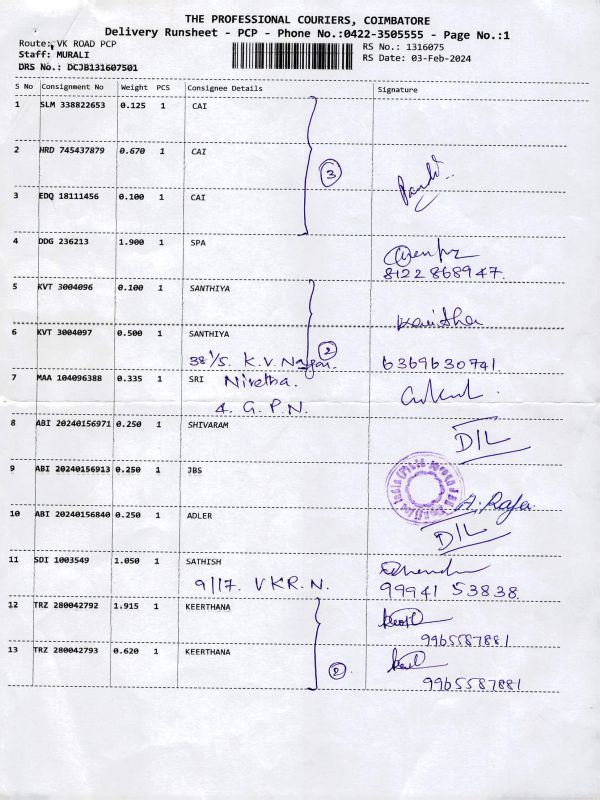 THE PROFESSIONAL COURIERS, COIMBATORE
Delivery Runsheet - PCP - Phone No.:0422-3505555 - Page No.:1
Route: VK ROAD PCP RS No.: 1316075
Staff: MURALI RS Date: 03-Feb-2024
DRS No.: DCJB131607501
S No Consignment No Weight PCS Consignee Details Signature
1 SLM 338822653 0.125 1 CAI
2 HRD 745437879 0.670 1 CAI
3
3 EDQ 18111456 0.100 1 CAI
4 DDG 236213 1.900 1 SPA
8122868947.
5 KVT 3004096 0.100 1 SANTHIYA
Kavitha
6 KVT 3004097 0.500 1 SANTHIYA
38 1/5. K.V. Nagar. 2 6369630741.
7 MAA 104096388 0.335 1 SRI Nivetha.
4. G.P.N.
8 ABI 20240156971 0.250 1 SHIVARAM
D/L
9 ABI 20240156913 0.250 1 JBS
A. Raja
10 ABI 20240156840 0.250 1 ADLER
D/L
11 SDI 1003549 1.050 1 SATHISH
9/17. VKR.N. 99941 53838
12 TRZ 280042792 1.915 1 KEERTHANA
9965587881
13 TRZ 280042793 0.620 1 KEERTHANA
2 9965587881